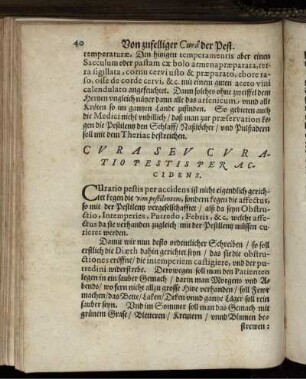 40
Von zufelliger Curâ der Pest.
temperaturæ. Den hitzigen temperamentis aber einen
Sacculum oder pastam ex bolo armena præparata, terra
sigillata, cornu cervi usto & præparato, ebore ra-
so, oder de corde cervi, &c. mit einem guten aceto vini
calendulato angefeuchtet. Dann solches ohne
Hertzen vngleich näher dann alle das arsenicum, vnnd alle
Kröten so im gantzen Lande zufinden. So gebieten auch
die Medici nicht vnbillich / daß man zur præservation ke-
gen die Pestilentz den Schlaff / Naßlöcher / vnd Pulßadern
soll mit dem Theriac bestreichen.
CVRA SEV CVRA-
TIO PESTIS PER AC-
CIDENS.
CUratio pestis per accidens ist nicht eigendlich gerich-
tet kegen die vim pestilentem, sondern kegen die affectus,
so mit der Pestilentz vergesellschafftet / als da seyn Obstru-
ctio, Intemperies, Putredo, Febris, &c. welche affe-
ctus da sie verhanden zugleich mit der Pestilentz müssen cu-
rieret werden.
Damit wir nun desto ordentlicher Schreiben / so soll
erstlich die Diæth dahin gerichtet seyn / das sie die obstru-
ctiones eröffne / die intemperiem castigiere, vnd der pu-
tredini widerstrebe. Derwegen soll man den Patienten
legen in ein sauber Gemach / darin man Morgens vnd A-
bends / wo fern nicht allzu grosse Hitze verhanden / soll Fewr
machen / das Bette / Laken / Deken vnnd gantze Läger soll rein
sauber seyn. Vnd im Sommer soll man das Gemach mit
grünem Graß / Bletern / Kreutern / vnnd Blumen be-
strewen: